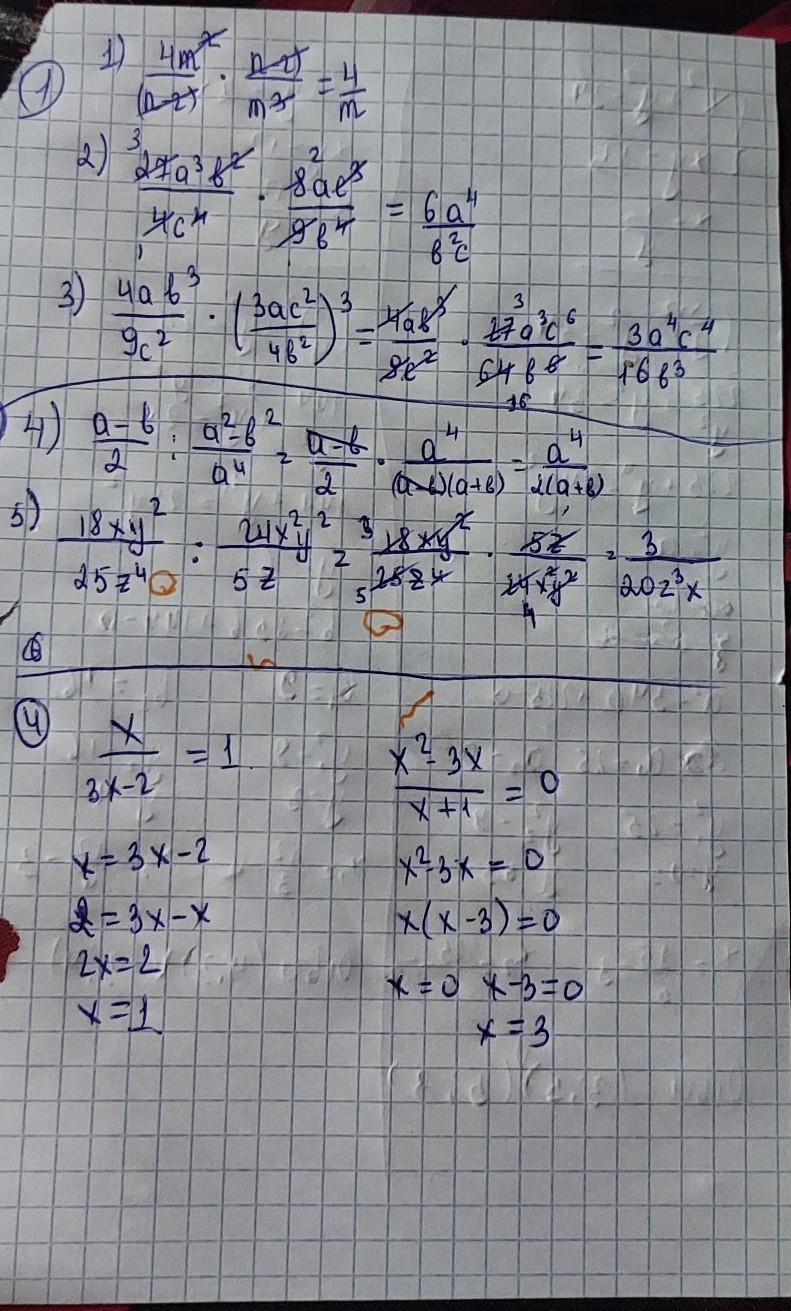 ① 1) 4m²/(n-2) · (n-2)/m³ = 4/m
2) 27a³b²/4c⁴ · 8ac³/9b⁴ = 6a⁴/b²c
3) 4ab³/9c² · (3ac²/4b²)³ = 4ab³/9c² · 27a³c⁶/64b⁶ = 3a⁴c⁴/16b³
4) a-b/2 : a²-b²/a⁴ = a-b/2 · a⁴/(a-b)(a+b) = a⁴/2(a+b)
5) 18xy²/25z⁴ : 24x²y²/5z = 18xy²/25z⁴ · 5z/24x²y² = 3/20z³x
④ x/3x-2 = 1
x = 3x-2
2 = 3x-x
2x = 2
x = 1
x²-3x/x+1 = 0
x²-3x = 0
x(x-3) = 0
x = 0 x-3 = 0
x = 3